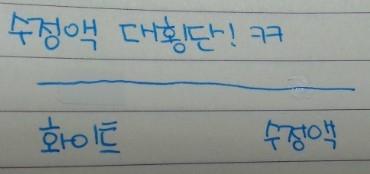 수정액 대횡단! ㅋㅋ
화이트 수정액